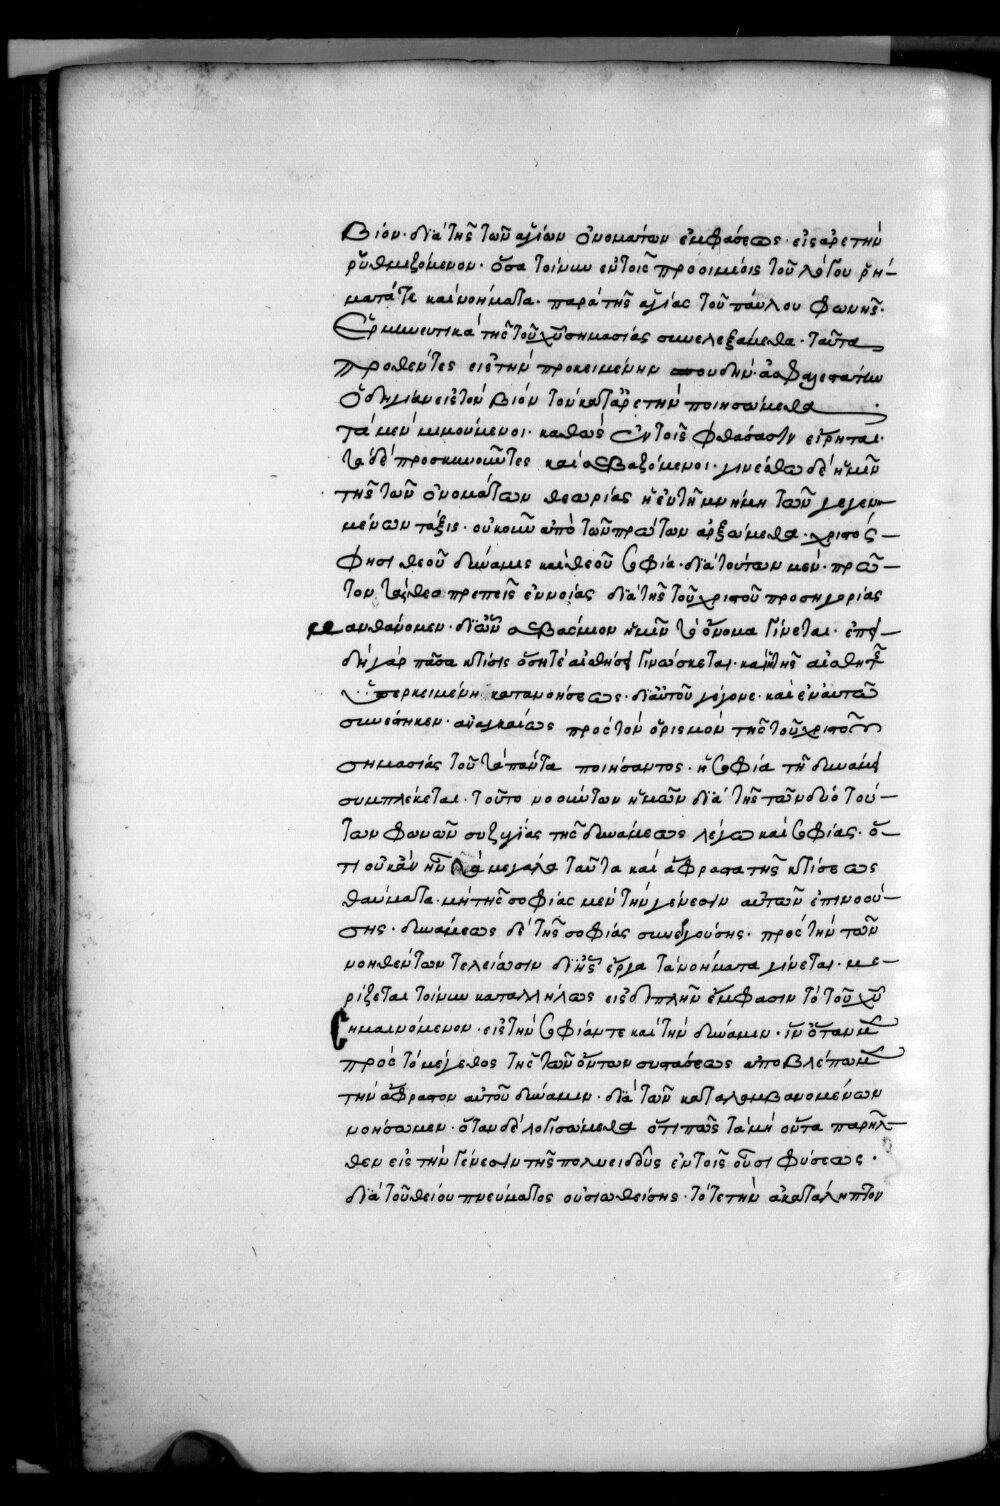 βίον· διὰ τῆς τῶν ἁγίων ὀνομάτων ἐμφάσεως· εἰς ἀρετὴν
ῥυθμιζόμενον· ὅσα τοίνυν ἐν τοῖς προοιμίοις τοῦ λόγου ῥή-
ματά τε καὶ νοήματα· παρὰ τῆς ἁγίας τοῦ παύλου φωνῆς·
Ἑρμηνευτικὰ τῆς τοῦ χῦ σημασίας συνελεξάμεθα· ταῦτα
προθέντες εἰς τὴν προκειμένην σπουδὴν· ἀσφαλεστάτην
ὁδηγίαν εἰς τὸν βίον τὸν κατ' ἀρετὴν ποιησώμεθα·
τὰ μὲν μιμούμενοι· καθὼς ἐν τοῖς φθάσασιν εἴρηται·
τὰ δὲ προσκυνοῦντες καὶ σεβαζόμενοι· γινέσθω δὲ ἡμῖν
τῆς τῶν ὀνομάτων θεωρίας ἡ ἐν τῇ μνήμῃ τῶν γεγεν-
μένων τάξις· οὐκοῦν ἀπὸ τῶν πρώτων ἀρξώμεθα· χριστός
φησι θεοῦ δύναμις καὶ θεοῦ σοφία· διὰ τούτων μὲν· πρῶ-
τον τὰς θεοπρεπεῖς ἐννοίας διὰ τῆς τοῦ χριστοῦ προσηγορίας
μανθάνομεν· δι' ὧν σεβάσμιον ἡμῖν τὸ ὄνομα γίνεται· ἐπει-
δὴ γὰρ πᾶσα κτίσις ὅση τε αἰσθήσει γινώσκεται· καὶ τῆς αἰσθητῆς
ὑπερκειμένη κατανοήσεως· δι' αὐτοῦ γέγονε· καὶ ἐν αὐτῷ
συνέστηκεν· ἀναγκαίως πρὸς τὸν ὁρισμὸν τῆς τοῦ χριστοῦ
σημασίας τοῦ τὰ πάντα ποιήσαντος· ἡ σοφία τῇ δυνάμει
συμπλέκεται· τοῦτο νοούντων ἡμῶν διὰ τῆς τῶν δύο τού-
των φωνῶν συζυγίας τῆς δυνάμεως λέγω καὶ σοφίας· ὅ-
τι οὐκ ἂν ἦν τὰ μεγάλα ταῦτα καὶ ἄφραστα τῆς κτίσεως
θαύματα· μὴ τῆς σοφίας μὲν τὴν γένεσιν αὐτῶν ἐπινοού-
σης· δυνάμεως δὲ τῆς σοφίας συνεργούσης· πρὸς τὴν τῶν
νοηθέντων τελείωσιν δι' ἧς ἔργα τὰ νοήματα γίνεται· με-
ρίζεται τοίνυν καταλλήλως εἰς διπλῆν ἔμφασιν τὸ τοῦ χῦ
σημαινόμενον· εἰς τὴν σοφίαν τε καὶ τὴν δύναμιν· ἵν' ὅταν μὲν
πρὸς τὸ μέγεθος τῆς τῶν ὄντων συστάσεως ἀποβλέπωμεν
τὴν ἄφραστον αὐτοῦ δύναμιν· διὰ τῶν καταλαμβανομένων
νοήσωμεν· ὅταν δὲ λογισώμεθα ὅτι πῶς τὰ μὴ ὄντα παρῆλ-
θεν εἰς τὴν γένεσιν τῆς πολυειδοῦς ἐν τοῖς οὖσι φύσεως·
διὰ τοῦ θείου πνεύματος οὐσιωθείσης· τότε τὴν ἀκατάληπτον